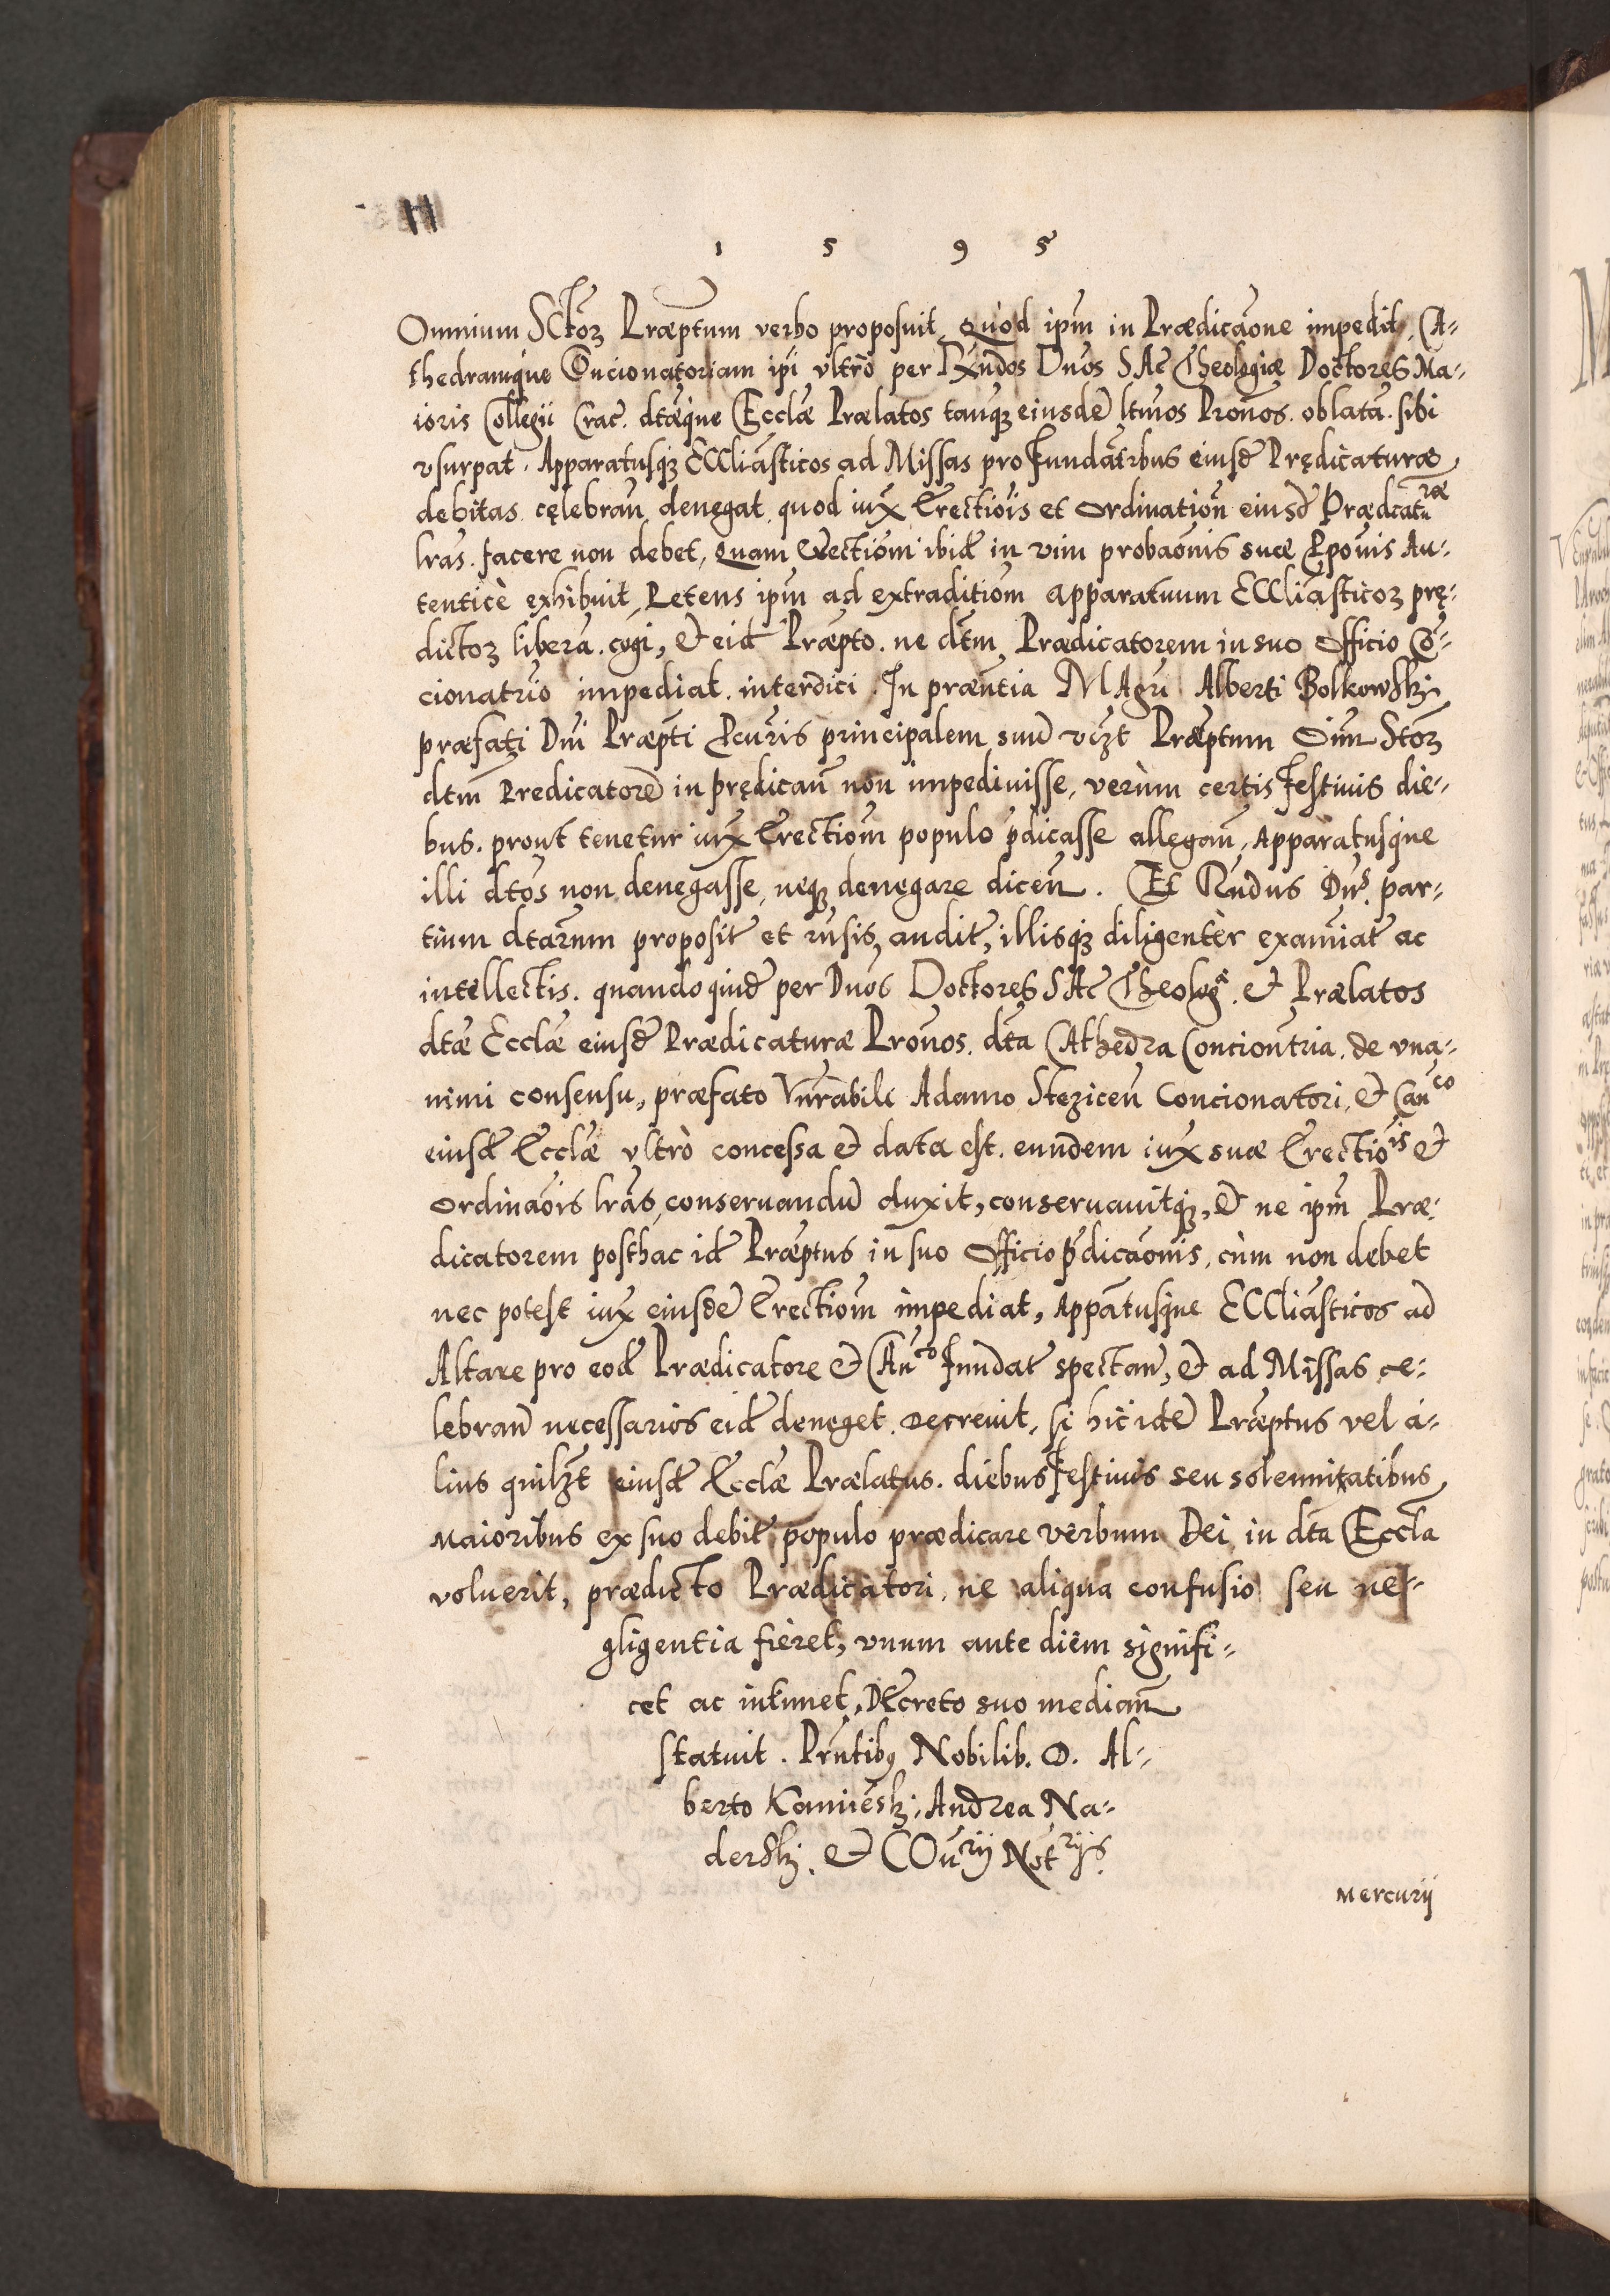 1 5 9 5
Omnium SCtoꝝ Præptum verbo proposuit, Quòd ipm in Prædicaone impedit, CA-
thedramque Concionatoriam ipi vltrò per Rndos Dnos SAc Theologiæ Doctores Ma-
ioris Collegii Crac. dtæque Ecclæ Prælatos tanqꝫ eiusdē ltmos Pronos. oblatā. sibi
vsurpat. Apparatusqꝫ ECCliasticos ad Missas pro Fundatribus eiusd Prędicaturæ
debitas cęlebran denegat quod iux Erectiois et Ordination eiusd Prædcatu ræ
lras. facere non debet, Quam Erectiom ibid in vim probaonis suæ Pponis Au-
tenticè exhibuit, Petens ipm ad extraditiom apparatuum ECCliasticoꝝ prę-
dictoꝝ liberā. cogi, & eid Præpto. ne dtm Prædicatorem in suo Officio Co-
cionatrio impediat. interdici. In præntia MAgri Alberti Bolkowskj
præfati Dni Præpti Pcuris principalem suū vczt Præptum Oim Stoꝝ
dtm Predicatorē in prędican non impediuisse, verùm certis Festiuis die-
bus. prout tenetur iux Erectiom populo pdicasse allegan, Apparatusque
illi dtos non denegasse, neqꝫ denegare dicen. Et Rndus Dns. par-
tium dtarum proposit et rnsis, audit, illisqꝫ diligentèr examiat ac
intellectis. quandoquid per Dnos Doctores SAc Theolog. & Prælatos
dtæ Ecclæ eiusd Prædicaturæ Pronos. dta CAthedra Conciontria. de vna-
nimi consensu, præfato Vnrabili Adamo Stezicen Concionatori, & Can co
eiusd Ecclæ vltrò concessa & data est. eundem iux suæ Erectiois &
Ordinaois lras, conseruandū duxit, conseruauitqꝫ, & ne ipm Præ-
dicatorem posthac id Præptus in suo Officio pdicaonis, cùm non debet
nec potest iux eiusdē Erectiom impediat, Appatusque ECCliasticos ad
Altare pro eod Prædicatore & CAn co Fundat spectan, & ad Missas ce-
lebran necessarios eid deneget. Decreuit, Si hic idē Præptus vel a-
lius quilꝫt eiusd Ecclæ Prælatus. diebus Festiuis seu solennitatibus
Maioribus ex suo debit populo prædicare verbum Dei in dta Eccla
voluerit, prædicto Prædicatori, ne aliqua confusio seu ne-
gligentia fieret, vnum ante diem signifi-
cet ac intimet, DEcreto suo median
statuit. Prntibꝰ Nobilib. D. Al-
berto Kamiēskj, Andrea Na-
derskj. & COu rij Not rijs.
Mercurij